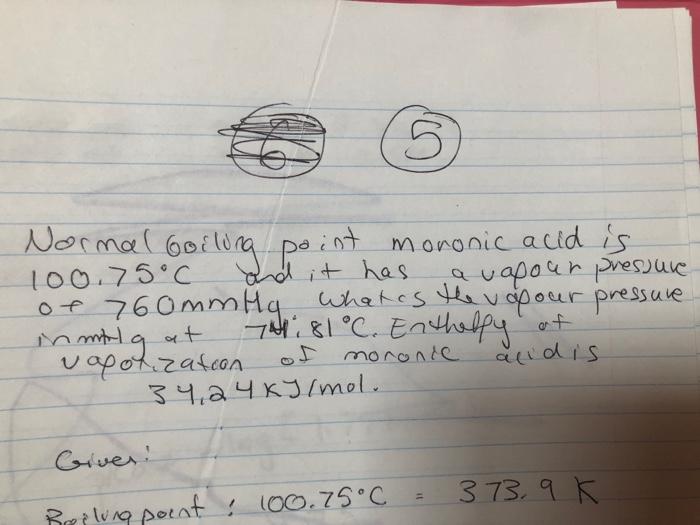 5
Normal boiling point mononic acid is
100.75°C and it has a vapour pressure
of 760mmHg. What is the vapour pressure
in mmHg at .81°C. Enthalpy of
vaporization of mononic acid is
34.24 KJ/mol.
Given:
Boiling point : 100.75°C = 373.9 K